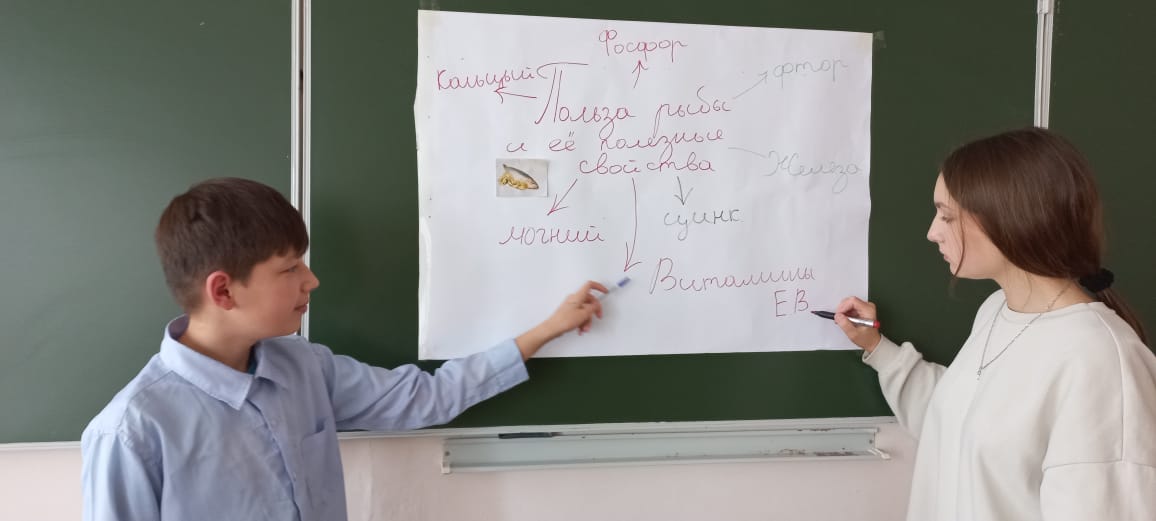 Фосфор
Кальций
фтор
Польза рыбы
и её полезные
свойства
Железо
магний
цинк
Витамины
Е В